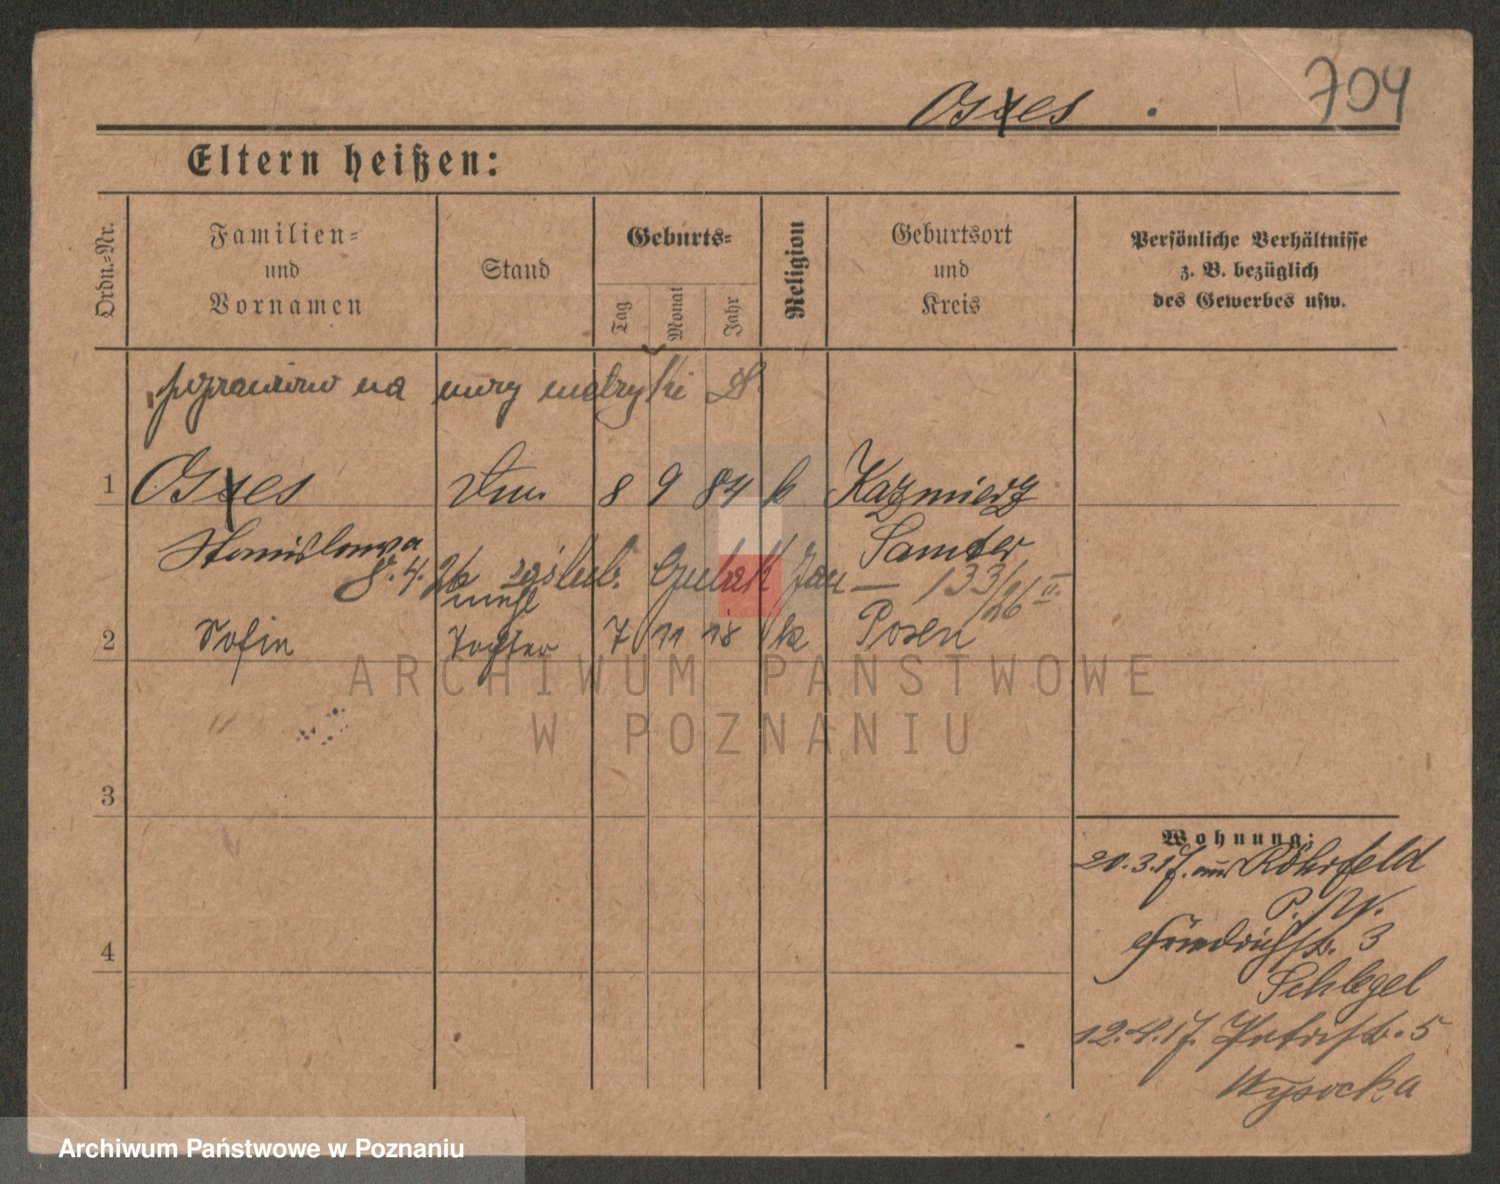 704
Oses
Eltern heißen:
Ordn.-Nr.
Familien-
und
Vornamen
Stand
Geburts-
Tag
Monat
Jahr
Religion
Geburtsort
und
Kreis
Persönliche Verhältnisse
z. B. bezüglich
des Gewerbes usw.
na mocy metryki
1 8 9 84 k Kazmierz
Stanislawa Samter
8.4.26 zaślub. Jan — 133/26 II.
unehl
2 Sofie Tochter 7 11 18 k Posen
3
4
Wohnung:
20.3.17. aus Röhrfeld
P. W.
Friedrichstr. 3
Schlegel
12.4.17. Petristr. 5
Wysocka
ARCHIWUM PAŃSTWOWE
W POZNANIU
Archiwum Państwowe w Poznaniu